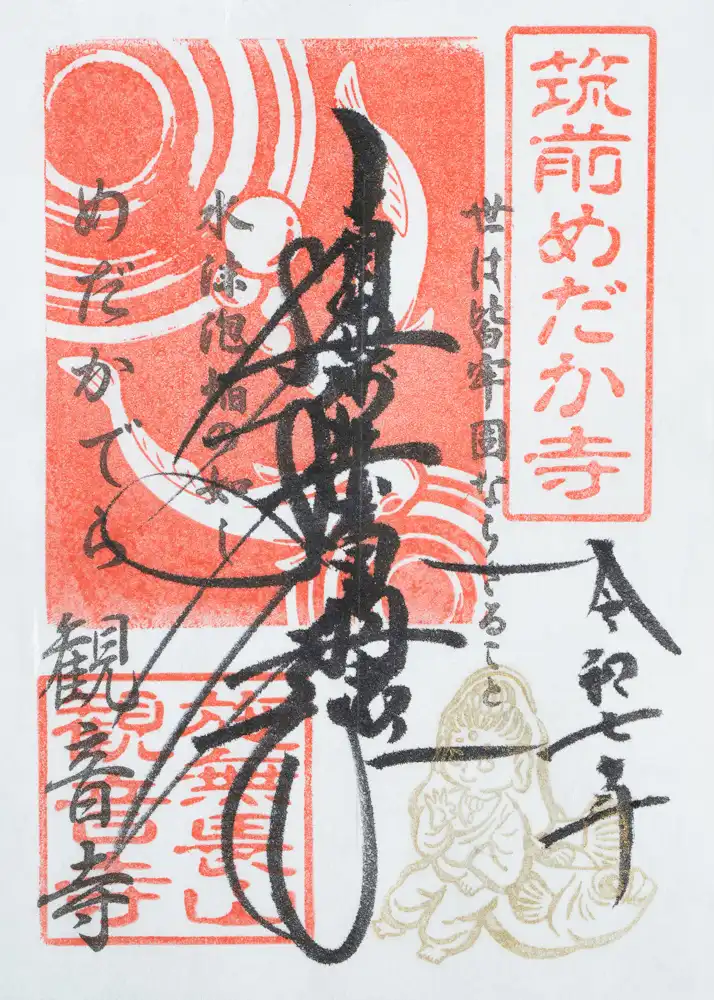 筑前めだか寺
令和七年
世は皆牢固ならざること
水沫泡焔の如し
めだかでら
観音寺
施無畏山
観音寺